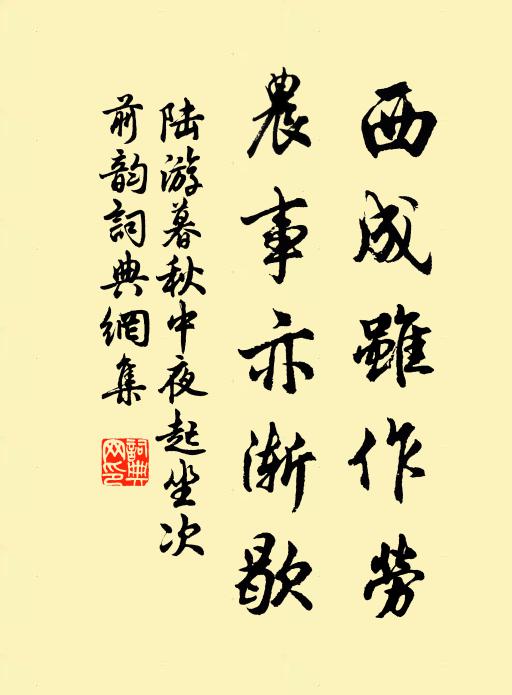 西成雖作勞
農事亦渐歇
陆游暮秋中夜起坐次
前韵詞典網集
詞典
网印